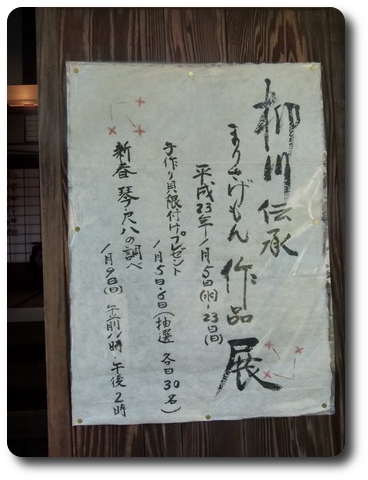 柳川伝承
まりさげもん作品展
平成23年1月5日(水)-23日(日)
手作り貝根付けプレゼント
1月5日・6日(抽選 各日30名)
新春 琴・尺八の調べ
1月9日(日) 午前11時・午後2時